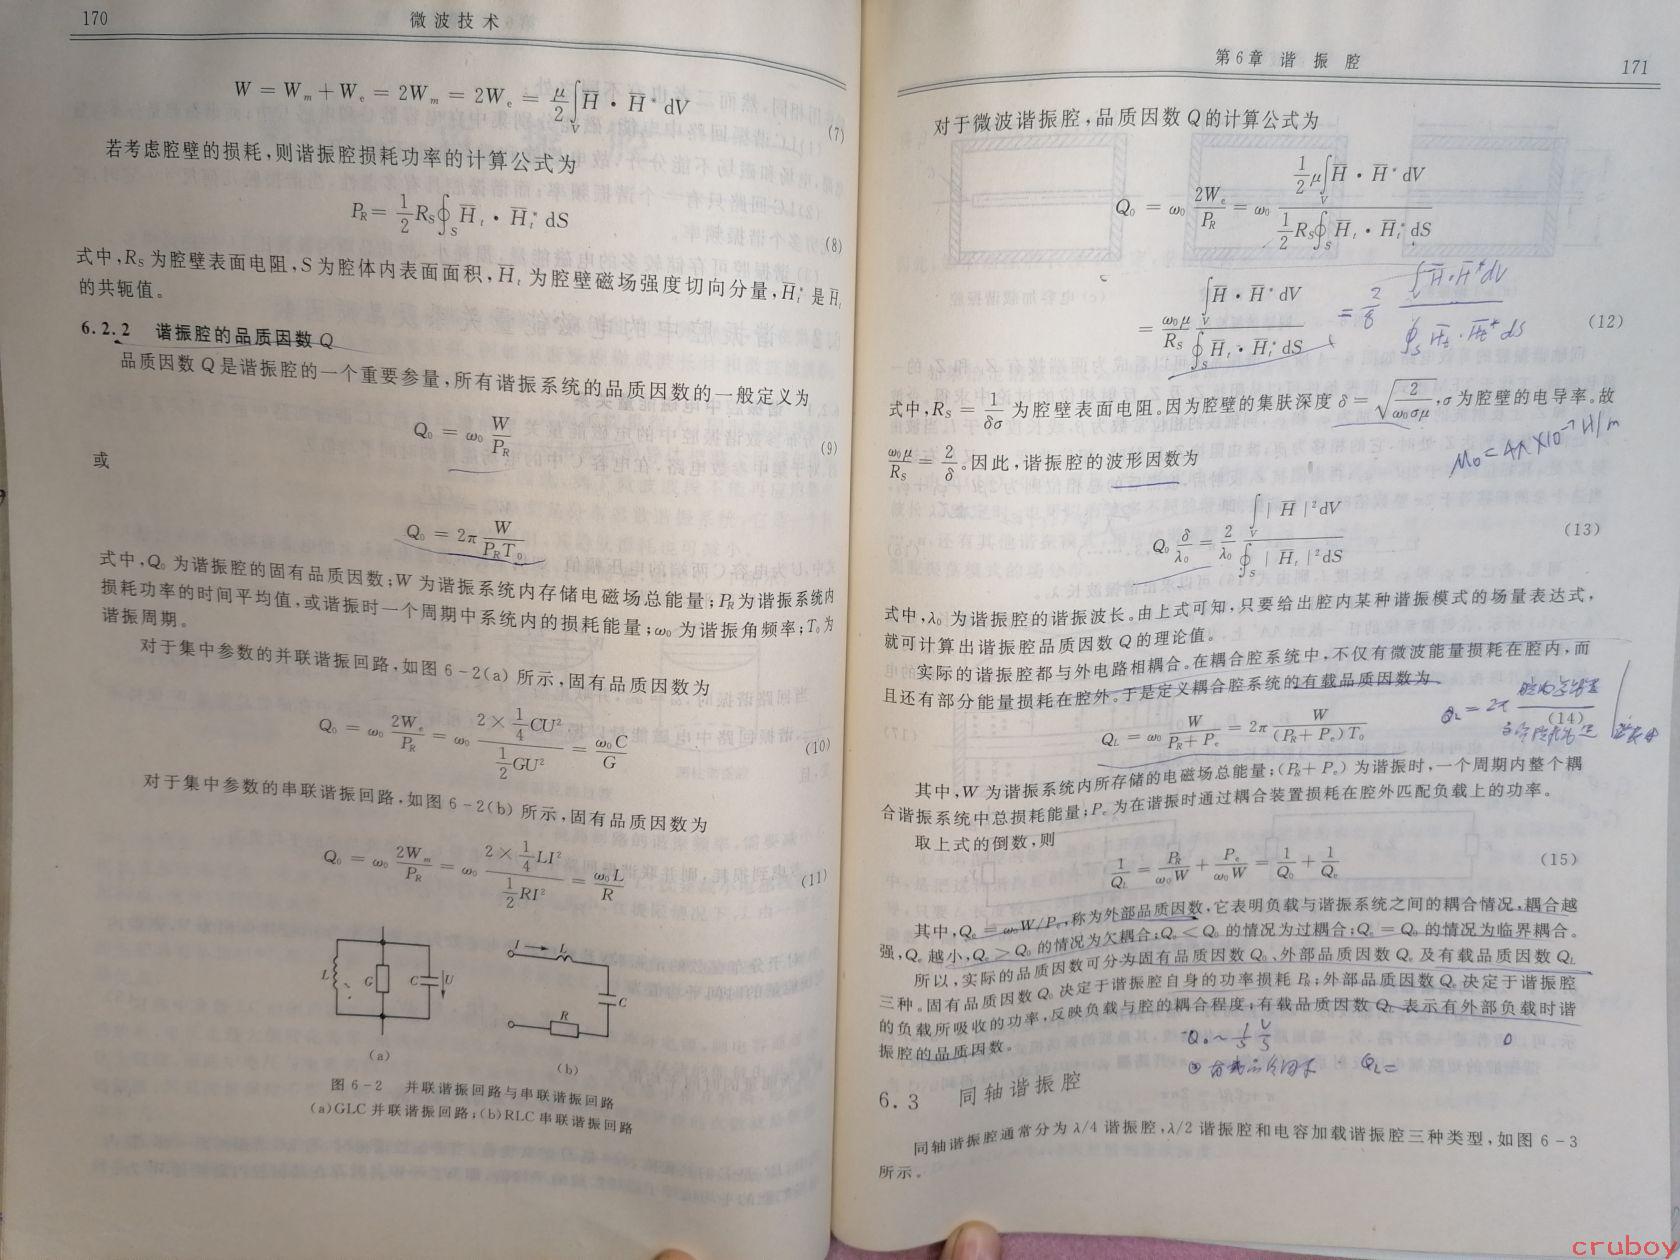 170
微波技术
W = Wₘ + Wₑ = 2Wₘ = 2Wₑ = μ/2 ∫_V H̅ · H̅* dV
(7)
若考虑腔壁的损耗，则谐振腔损耗功率的计算公式为
P_R = 1/2 R_S ∮_S H̅ₜ · H̅ₜ* dS
(8)
式中，R_S 为腔壁表面电阻，S为腔体内表面面积，H̅ₜ 为腔壁磁场强度切向分量，H̅ₜ* 是 H̅ₜ
的共轭值。
6.2.2 谐振腔的品质因数 Q
品质因数 Q 是谐振腔的一个重要参量，所有谐振系统的品质因数的一般定义为
Q₀ = ω₀ W/P_R
(9)
或
Q₀ = 2π W/(P_R T₀)
式中，Q₀ 为谐振腔的固有品质因数；W 为谐振系统内存储电磁场总能量；P_R 为谐振系统内
损耗功率的时间平均值，或谐振时一个周期中系统内的损耗能量；ω₀ 为谐振角频率；T₀ 为
谐振周期。
对于集中参数的并联谐振回路，如图 6-2(a) 所示，固有品质因数为
Q₀ = ω₀ 2Wₑ/P_R = ω₀ (2 × 1/4 CU²)/(1/2 GU²) = ω₀C/G
(10)
对于集中参数的串联谐振回路，如图 6-2(b) 所示，固有品质因数为
Q₀ = ω₀ 2Wₘ/P_R = ω₀ (2 × 1/4 LI²)/(1/2 RI²) = ω₀L/R
(11)
L G C U
I L C R
(a)
(b)
图 6-2 并联谐振回路与串联谐振回路
(a)GLC 并联谐振回路；(b)RLC 串联谐振回路
第6章 谐振腔
171
对于微波谐振腔，品质因数 Q 的计算公式为
Q₀ = ω₀ 2Wₑ/P_R = ω₀ (1/2 μ∫_V H̅ · H̅* dV)/(1/2 R_S ∮_S H̅ₜ · H̅ₜ* dS)
= ω₀μ/R_S (∫_V H̅ · H̅* dV)/(∮_S H̅ₜ · H̅ₜ* dS)
= 2/δ (∫ H̅·H̅* dV)/(∮_S H̅ₜ·H̅ₜ* dS)
(12)
式中，R_S = 1/(δσ) 为腔壁表面电阻。因为腔壁的集肤深度 δ = √(2/(ω₀σμ))，σ 为腔壁的电导率。故
ω₀μ/R_S = 2/δ。因此，谐振腔的波形因数为
μ₀ = 4π×10⁻⁷ H/m
Q₀ δ/λ₀ = 2/λ₀ (∫_V |H̅|² dV)/(∮_S |H̅ₜ|² dS)
(13)
式中，λ₀ 为谐振腔的谐振波长。由上式可知，只要给出腔内某种谐振模式的场量表达式，
就可计算出谐振腔品质因数 Q 的理论值。
实际的谐振腔都与外电路相耦合。在耦合腔系统中，不仅有微波能量损耗在腔内，而
且还有部分能量损耗在腔外。于是定义耦合腔系统的有载品质因数为
Q_L = ω₀ W/(P_R + Pₑ) = 2π W/((P_R + Pₑ)T₀)
(14)
Q_L = 2π
其中，W 为谐振系统内所存储的电磁场总能量；(P_R + Pₑ) 为谐振时，一个周期内整个耦
合谐振系统中总损耗能量；Pₑ 为在谐振时通过耦合装置损耗在腔外匹配负载上的功率。
取上式的倒数，则
1/Q_L = P_R/(ω₀W) + Pₑ/(ω₀W) = 1/Q₀ + 1/Qₑ
(15)
其中，Qₑ = ω₀W/Pₑ，称为外部品质因数，它表明负载与谐振系统之间的耦合情况，耦合越
强，Qₑ 越小，Qₑ > Q₀ 的情况为欠耦合；Qₑ < Q₀ 的情况为过耦合；Qₑ = Q₀ 的情况为临界耦合。
所以，实际的品质因数可分为固有品质因数 Q₀、外部品质因数 Qₑ 及有载品质因数 Q_L
三种。固有品质因数 Q₀ 决定于谐振腔自身的功率损耗 P_R；外部品质因数 Qₑ 决定于谐振腔
的负载所吸收的功率，反映负载与腔的耦合程度；有载品质因数 Q_L 表示有外部负载时谐
振腔的品质因数。
Q₀ ~ 1/δ V/S
Q_L =
6.3 同轴谐振腔
同轴谐振腔通常分为 λ/4 谐振腔，λ/2 谐振腔和电容加载谐振腔三种类型，如图 6-3
所示。
cruboy